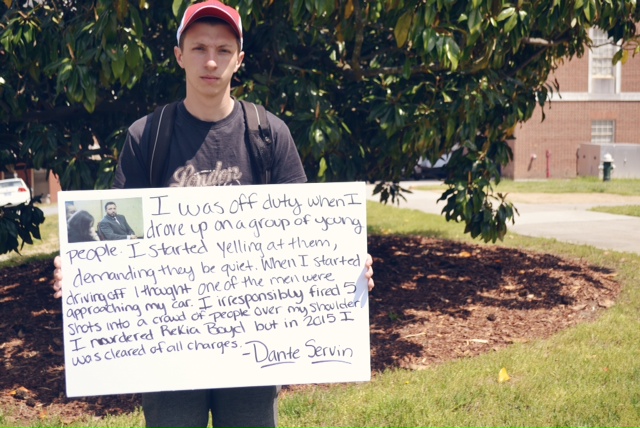 I was off duty when I
drove up on a group of young
people. I started yelling at them,
demanding they be quiet. When I started
driving off I thought one of the men were
approaching my car. I irresponsibly fired 5
shots into a crowd of people over my shoulder.
I murdered Rekia Boyd but in 2015 I
was cleared of all charges.
-Dante Servin